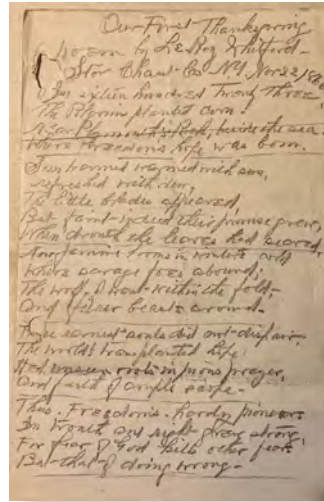 Our First Thanksgiving
poem by LeRoy Whitford
Star Chaut. Co N.Y. Nov 22
In sixteen hundred Twenty Three
The Pilgrim planted corn.
Near Plymouth's Rock, beside the sea
Where Freedom's hope was born.
Sun warmed with sun,
refreshed with dew,
The little blades appeared,
But faint their promise grew,
When drouth the leaves had seared,
Now famine looms in winter's cold
Where savage foes abound;
The wolf, Want within the fold,
And fiercer beasts around.
earnest souls did not despair,
The world's transplanted hope
Had unseen roots in pious prayer,
And faith of ample scope.
Thus Freedom's hardy pioneers
In Truth and right grew strong,
For fear of God kills other fears
But that of doing wrong.